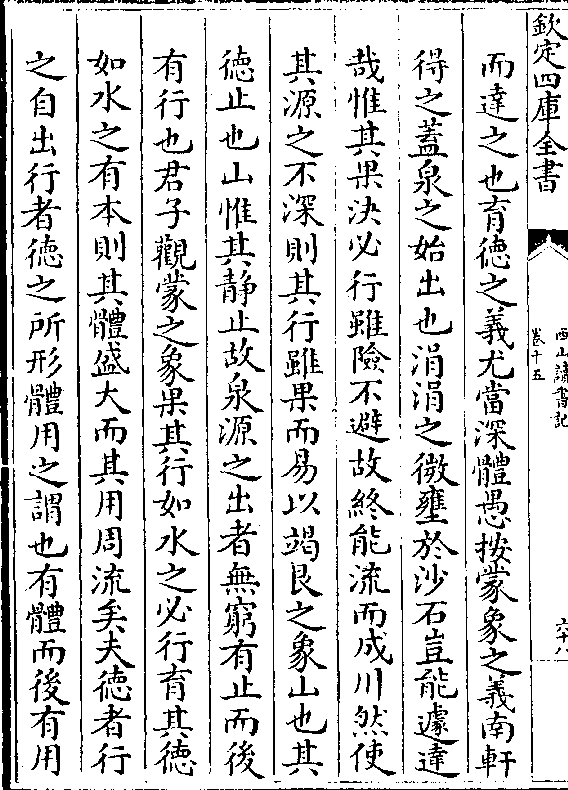 欽定四庫全書
西山讀書記
卷十五
六十八
而達之也育德之義尤當深體愚按蒙象之義南軒
得之蓋泉之始出也涓涓之微壅於沙石豈能遽達
哉惟其果決必行雖險不避故終能流而成川然使
其源之不深則其行雖果而易以竭艮之象山也其
德止也山惟其静止故泉源之出者無窮有止而後
有行也君子觀蒙之象果其行如水之必行育其德
如水之有本則其體盛大而其用周流矣夫德者行
之自出行者德之所形體用之謂也有體而後有用